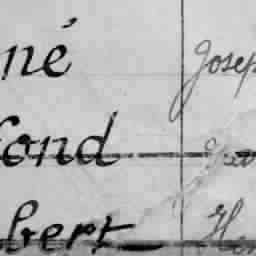 né Josep
fond
bert Hen